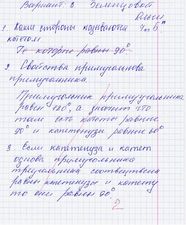 Вариант 8. Земцовой
Ольги 7 "Б"
1. Какие стороны называются
катетом
Те которые равны 90°
2. Свойства прямоугольного
прямоугольника.
Прямоугольник прямоугольника
равен 180°, а значит 270
там есть катет равные
90° и гипотенузы равные 60°
3 если гипотенуза и катет
одного прямоугольника
треугольника соответственно
равен гипотенузы и катету
то они равнон 90°
2